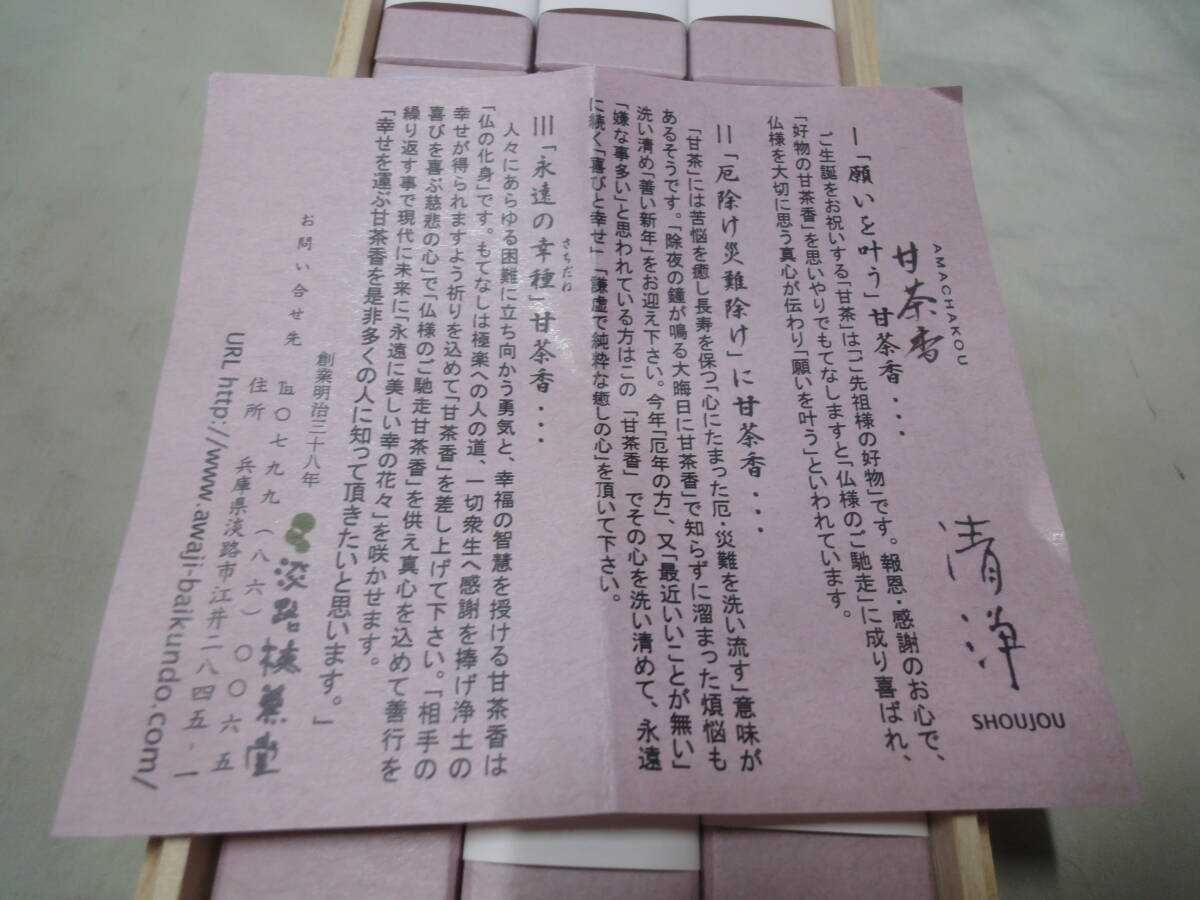 清浄
SHOUJOU
AMACHAKOU
甘茶香
一「願いを叶う」甘茶香・・・
ご生誕をお祝いする「甘茶」はご先祖様の好物」です。報恩・感謝のお心で、
「好物の甘茶香」を思いやりでもてなしますと「仏様のご馳走」に成り喜ばれ、
仏様を大切に思う真心が伝わり「願いを叶う」といわれています。
二「厄除け災難除け」に甘茶香・・・
「甘茶」には苦悩を癒し長寿を保つ「心にたまった厄・災難を洗い流す」意味が
あるそうです。「除夜の鐘が鳴る大晦日に甘茶香」で知らずに溜まった煩悩も
洗い清め「善い新年」をお迎え下さい。今年「厄年の方」、又「最近いいことが無い」
「嫌な事多い」と思われている方はこの「甘茶香」でその心を洗い清めて、永遠
に続く「喜びと幸せ」「謙虚で純粋な癒しの心」を頂いて下さい。
三「永遠の幸種」甘茶香・・・
さちだね
人々にあらゆる困難に立ち向かう勇気と、幸福の智慧を授ける甘茶香は
「仏の化身」です。もてなしは極楽への人の道、一切衆生へ感謝を捧げ浄土の
幸せが得られますよう祈りを込めて「甘茶香」を差し上げて下さい。「相手の
喜びを喜ぶ慈悲の心」で「仏様のご馳走甘茶香」を供え真心を込めて善行を
繰り返す事で現代に未来に「永遠に美しい幸の花々」を咲かせます。
「幸せを運ぶ甘茶香を是非多くの人に知って頂きたいと思います。」
創業明治三十八年
淡路梅薫堂
お問い合せ先
℡〇七九九(八六)〇〇六五
住所 兵庫県淡路市江井二八四五-一
URL http://www.awaji-baikundo.com/